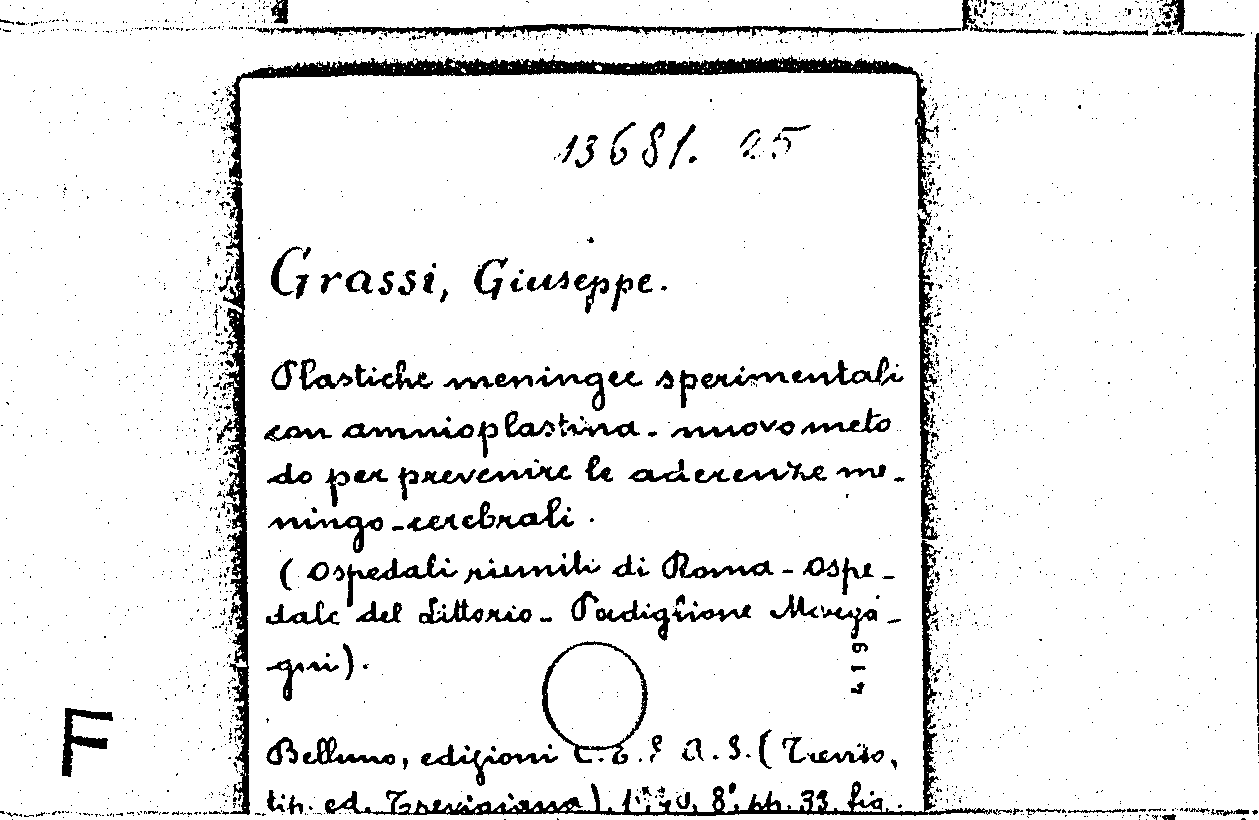 13681. 25
Grassi, Giuseppe.
Plastiche meningee sperimentali
con amnioplastina - nuovo meto
do per prevenire le aderenze me-
ningo-cerebrali.
(Ospedali riuniti di Roma - Ospe-
dale del Littorio - Padiglione Morga-
gni).
419
F
Belluno, edizioni C.E.F.A.S. (Treviso,
tip. ed. Trevigiana), 8°, pp. 33, fig.